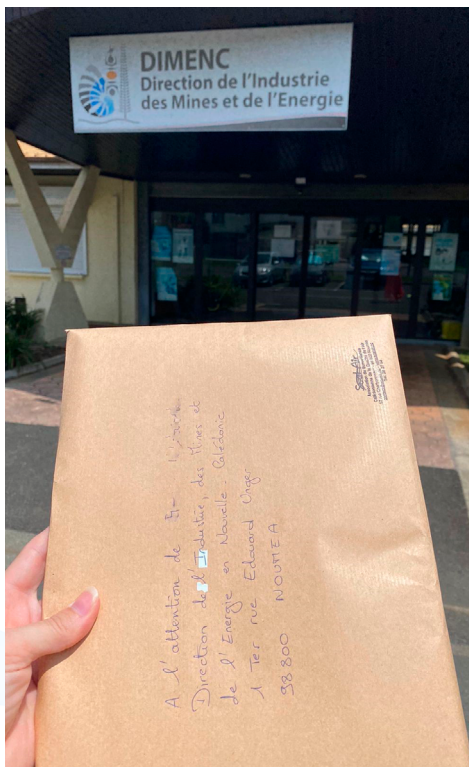 DIMENC
Direction de l'Industrie
des Mines et de l'Energie
A l'attention de
Direction de l'Industrie, des Mines et
de l'Energie en Nouvelle Calédonie
1 Ter rue Edouard Unger
98800 NOUMEA